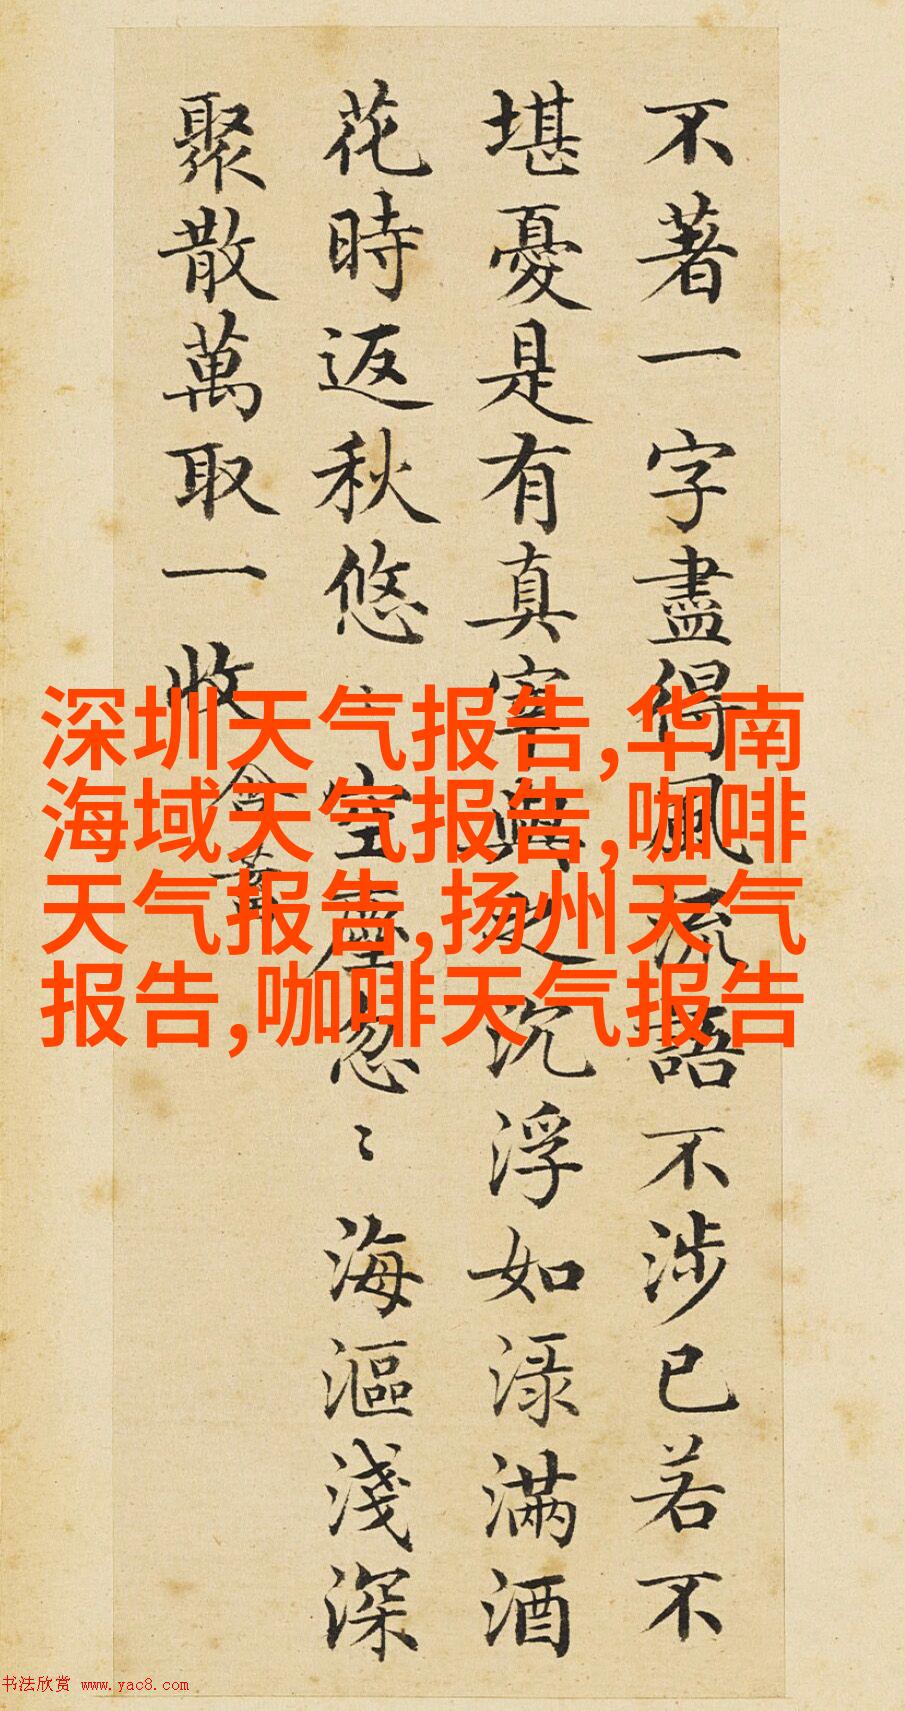 不著一字盡得風流語不涉已若不
堪憂是有真宰與之沉浮如渌滿酒
花時返秋悠〻空塵忽〻海漚淺深
聚散萬取一收 含蓄
深圳天气报告,华南
海域天气报告,咖啡
天气报告,扬州天气
报告,咖啡天气报告
书法欣赏 www.yac8.com